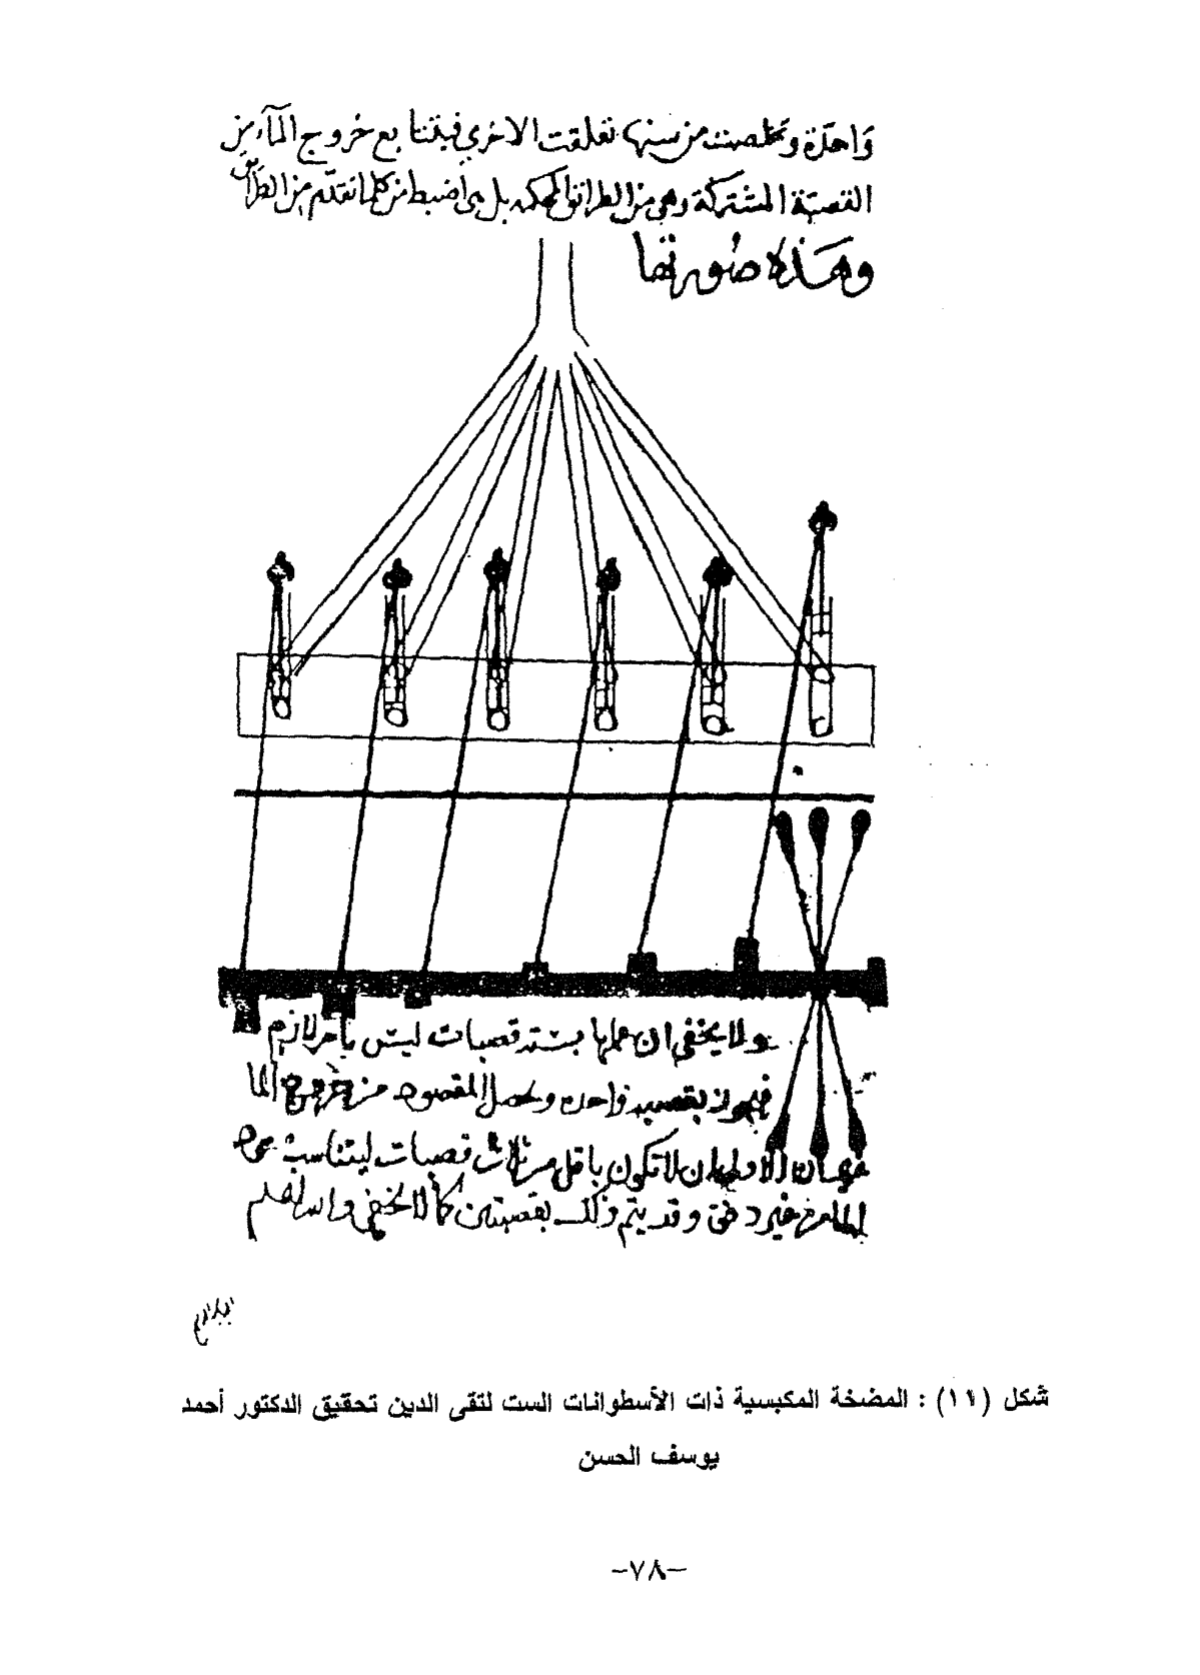 واحدة وتخلصت من سنها تعلقت الاخرى فيتتابع خروج المآء من
القصبة المشتركة وهي من الطرائق المحكمه بل هي أضبط من كلما تقدم من الطرائق
وهذه صورتها
ولا يخفى ان عملها بستة قصبات ليس بامر لازم
فيجوز بقصبه واحده ويحصل المقصود من خروج الما
الاولى ان لا تكون باقل من ثلاث قصبات ليتناسب
غير وقد يتم ذلك بقصبتين كما لا يخفى والله اعلم
شكل (١١) : المضخة المكبسية ذات الأسطوانات الست لتقى الدين تحقيق الدكتور أحمد
يوسف الحسن
-٧٨-